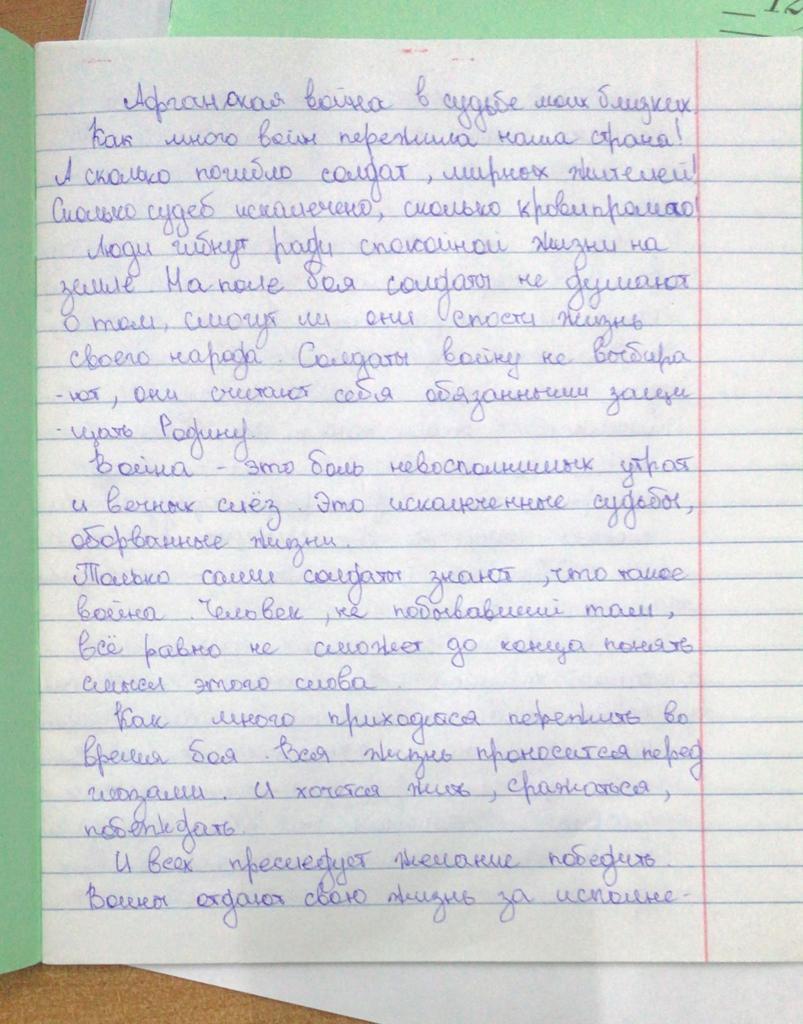 12
Афганская война в судьбе моих близких
Как много войн пережила наша страна!
А сколько погибло солдат, мирных жителей!
Сколько судеб искалечено, сколько крови пролито!
Люди гибнут ради спокойной жизни на
земле. На поле боя солдаты не думают
о том, смогут ли они спасти жизнь
своего народа. Солдаты войну не выбира
-ют, они считают себя обязанными защи
-щать Родину.
Война - это боль невосполнимых утрат
и вечных слёз. Это искалеченные судьбы,
оборванные жизни.
Только сами солдаты знают, что такое
война. Человек, не побывавший там,
всё равно не сможет до конца понять
смысл этого слова.
Как много приходится пережить во
время боя. Вся жизнь проносится перед
глазами. И хочется жить, сражаться,
побеждать.
И всех преследует желание победить.
Воины отдают свою жизнь за исполне-